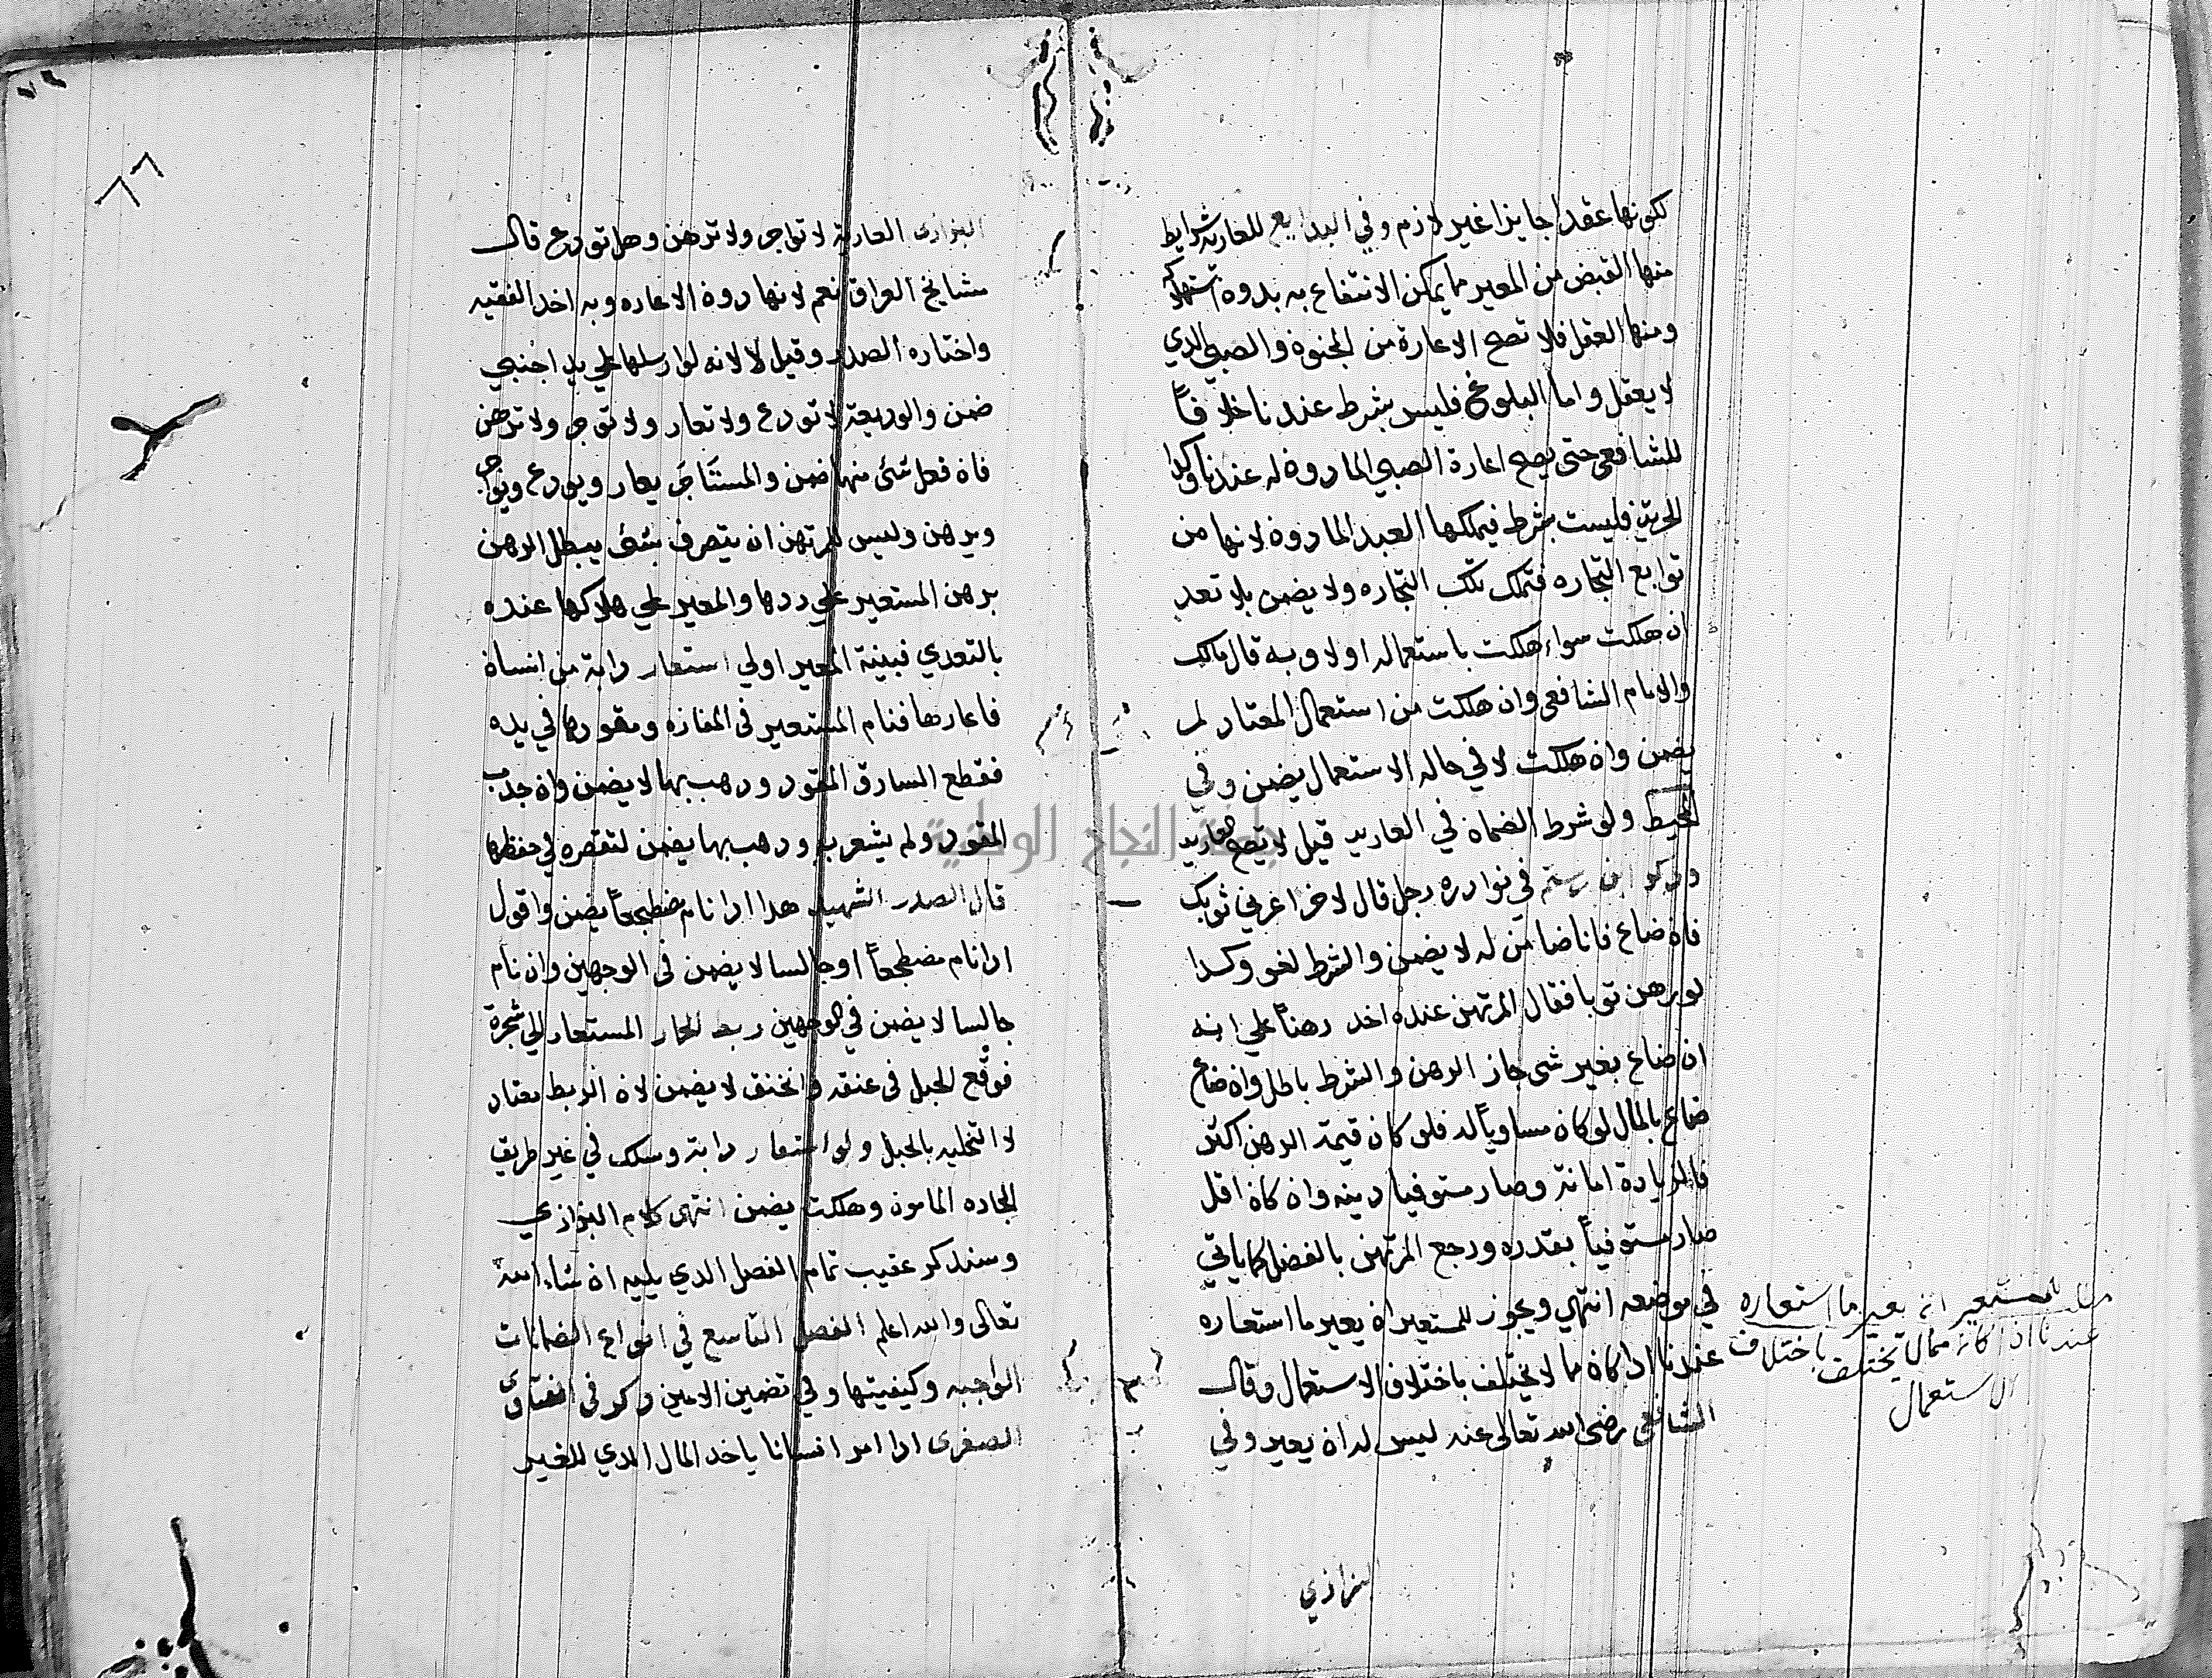 لكونها عقدا جايزا غير لازم وفي البدايع للعارية شرايط
منها القبض من المعير مما يمكن الانتفاع به بدون استهلاكه
ومنها العقل فلا تصح الاعارة من المجنون والصبي الدي
لا يعقل واما البلوغ فليس بشرط عندنا خلافاً
للشافعي حتي يصح اعارة الصبي المادون له عندنا وكدا
الحرية فليست بشرط فيملكها العبد المادون لانها من
توابع التجاره فتملك بملك التجاره ولا يضمن بلا تعد
ان هلكت سواء هلكت باستعماله اولا وبه قال مالك
والامام الشافعي وان هلكت من استعمال المعتاد لم
يضمن وان هلكت لا في حاله الاستعمال يضمن وفي
المحيط ولو شرط الضمان في العاريه قيل لا تصح العاريه
ودكر ابن رستم في نوادره رجل قال لاخر اعرني ثوبك
فان ضاع فانا ضامن له لا يضمن والشرط لغو وكدا
لو رهن ثوبا فقال المرتهن عنده اخد رهناً علي انه
ان ضاع بغير شي جاز الرهن والشرط باطل وان ضاع
ضاع بالمال لو كان مساوياً له فلو كان قيمة الرهن اكثر
فالزيادة امانة وصار مستوفيا دينه وان كان اقل
صار مستوفياً بقدره ورجع المرتهن بالفضل كما ياتي
في موضعه انتهي ويجوز للمستعير ان يعير ما استعاره
عندنا ادا كان مما لا يختلف باختلاف الاستعمال وقال
الشافعي رضي الله تعالى عنه ليس له ان يعير وفي
مطلب للمستعير ان يعير ما استعاره
عندنا اذا كان مما لا يختلف باختلاف
الاستعمال
البزازي
٨٦
البزازى العارية لا تؤاجر ولا ترهن وهل تودع قال
مشايخ العراق نعم لانها دون الاعاره وبه اخد الفقيه
واختاره الصدر وقيل لا لانه لو ارسلها علي يد اجنبي
ضمن والوديعة لا تودع ولا تعار ولا تؤاجر ولا ترهن
فان فعل شئ منها ضمن والمستأجر يعار ويودع ويؤاجر
ويرهن وليس للمرتهن ان يتصرف بشئ يبطل الرهن
برهن المستعير علي ردها والمعير علي هلاكها عنده
بالتعدي فبينة المعير اولي استعار دابة من انسان
فاعارها فنام المستعير في المفازه ومقودها في يده
فقطع السارق المقود ودهب بها لا يضمن وان جدب
المقود ولم يشعر به ودهب بها يضمن لتقصره في حفظها
قال الصدر الشهيد هدا ادا نام مضطجعاً يضمن واقول
ادا نام مضطجعاً او جالسا لا يضمن في الوجهين وان نام
جالسا لا يضمن في الوجهين ربط الحمار المستعار الي شجرة
فوقع الحبل في عنقه وانخنق لا يضمن لان الربط معتاد
لا التخليه بالحبل ولو استعار دابة وسلك في غير طريق
الجاده المامون وهلكت يضمن انتهى كلام البزازي
وسندكر عقيب تمام الفصل الدي يليه ان شاء الله
تعالى والله اعلم الفصل التاسع في انواع الضمانات
الواجبه وكيفيتها وفي تضمين الامين دكر في الفتاوى
الصغرى ادا امر انسانا ياخد المال الدي للغير
جامعة النجاح الوطنية